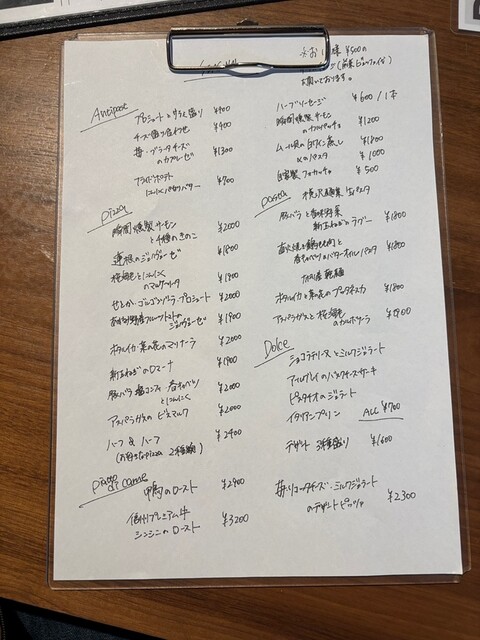 Antipast
プロシュートとサラミ盛り ¥900
チーズ盛り合わせ ¥900
苺・ブラータチーズ
のカプレーゼ ¥1300
フライドポテト
にんにくバター ¥700
pizza
瞬間燻製サーモン
と4種のきのこ ¥2000
連根のジェノヴェーゼ ¥1800
桜海老とにんにく
のマルゲリータ ¥1900
せとか・ゴルゴンゾーラ・プロシュート ¥2000
フルーツトマトの
ジェノヴェーゼ ¥1900
ホタルイカ・菜の花のマリナーラ ¥2000
新玉ねぎのロマーナ ¥1900
豚バラ塩コンフィ・春キャベツ
とにんにく ¥2000
アスパラガスのビスマルク ¥2000
ハーフ&ハーフ
(お好きなpizza 2種類) ¥2400
piatto
di carne
鴨のロースト ¥2900
信州プレミアム牛
シンシンのロースト ¥3200
※お 様 ¥500の
頂いております。
ハーブソーセージ ¥600/1本
瞬間燻製サーモン
のカルパッチョ ¥1200
ムール貝の白ワイン蒸し ¥1800
〆のパスタ ¥1000
自家製フォカッチャ ¥500
pasta
生パスタ
豚バラと香味野菜
新玉ねぎのラグー ¥1800
春キャベツのバターオイルパスタ ¥1800
乾麺
ホタルイカと菜の花のプッタネスカ ¥1800
アスパラガスと桜海老
のカルボナーラ ¥1900
Dolce
ショコラテリーヌとミルクジェラート
アールグレイのバスクチーズケーキ
ピスタチオのジェラート
イタリアンプリン ALL ¥700
デザート 3種盛り ¥1600
苺・リコッタチーズ・ミルクジェラート
のデザートピッツァ ¥2300